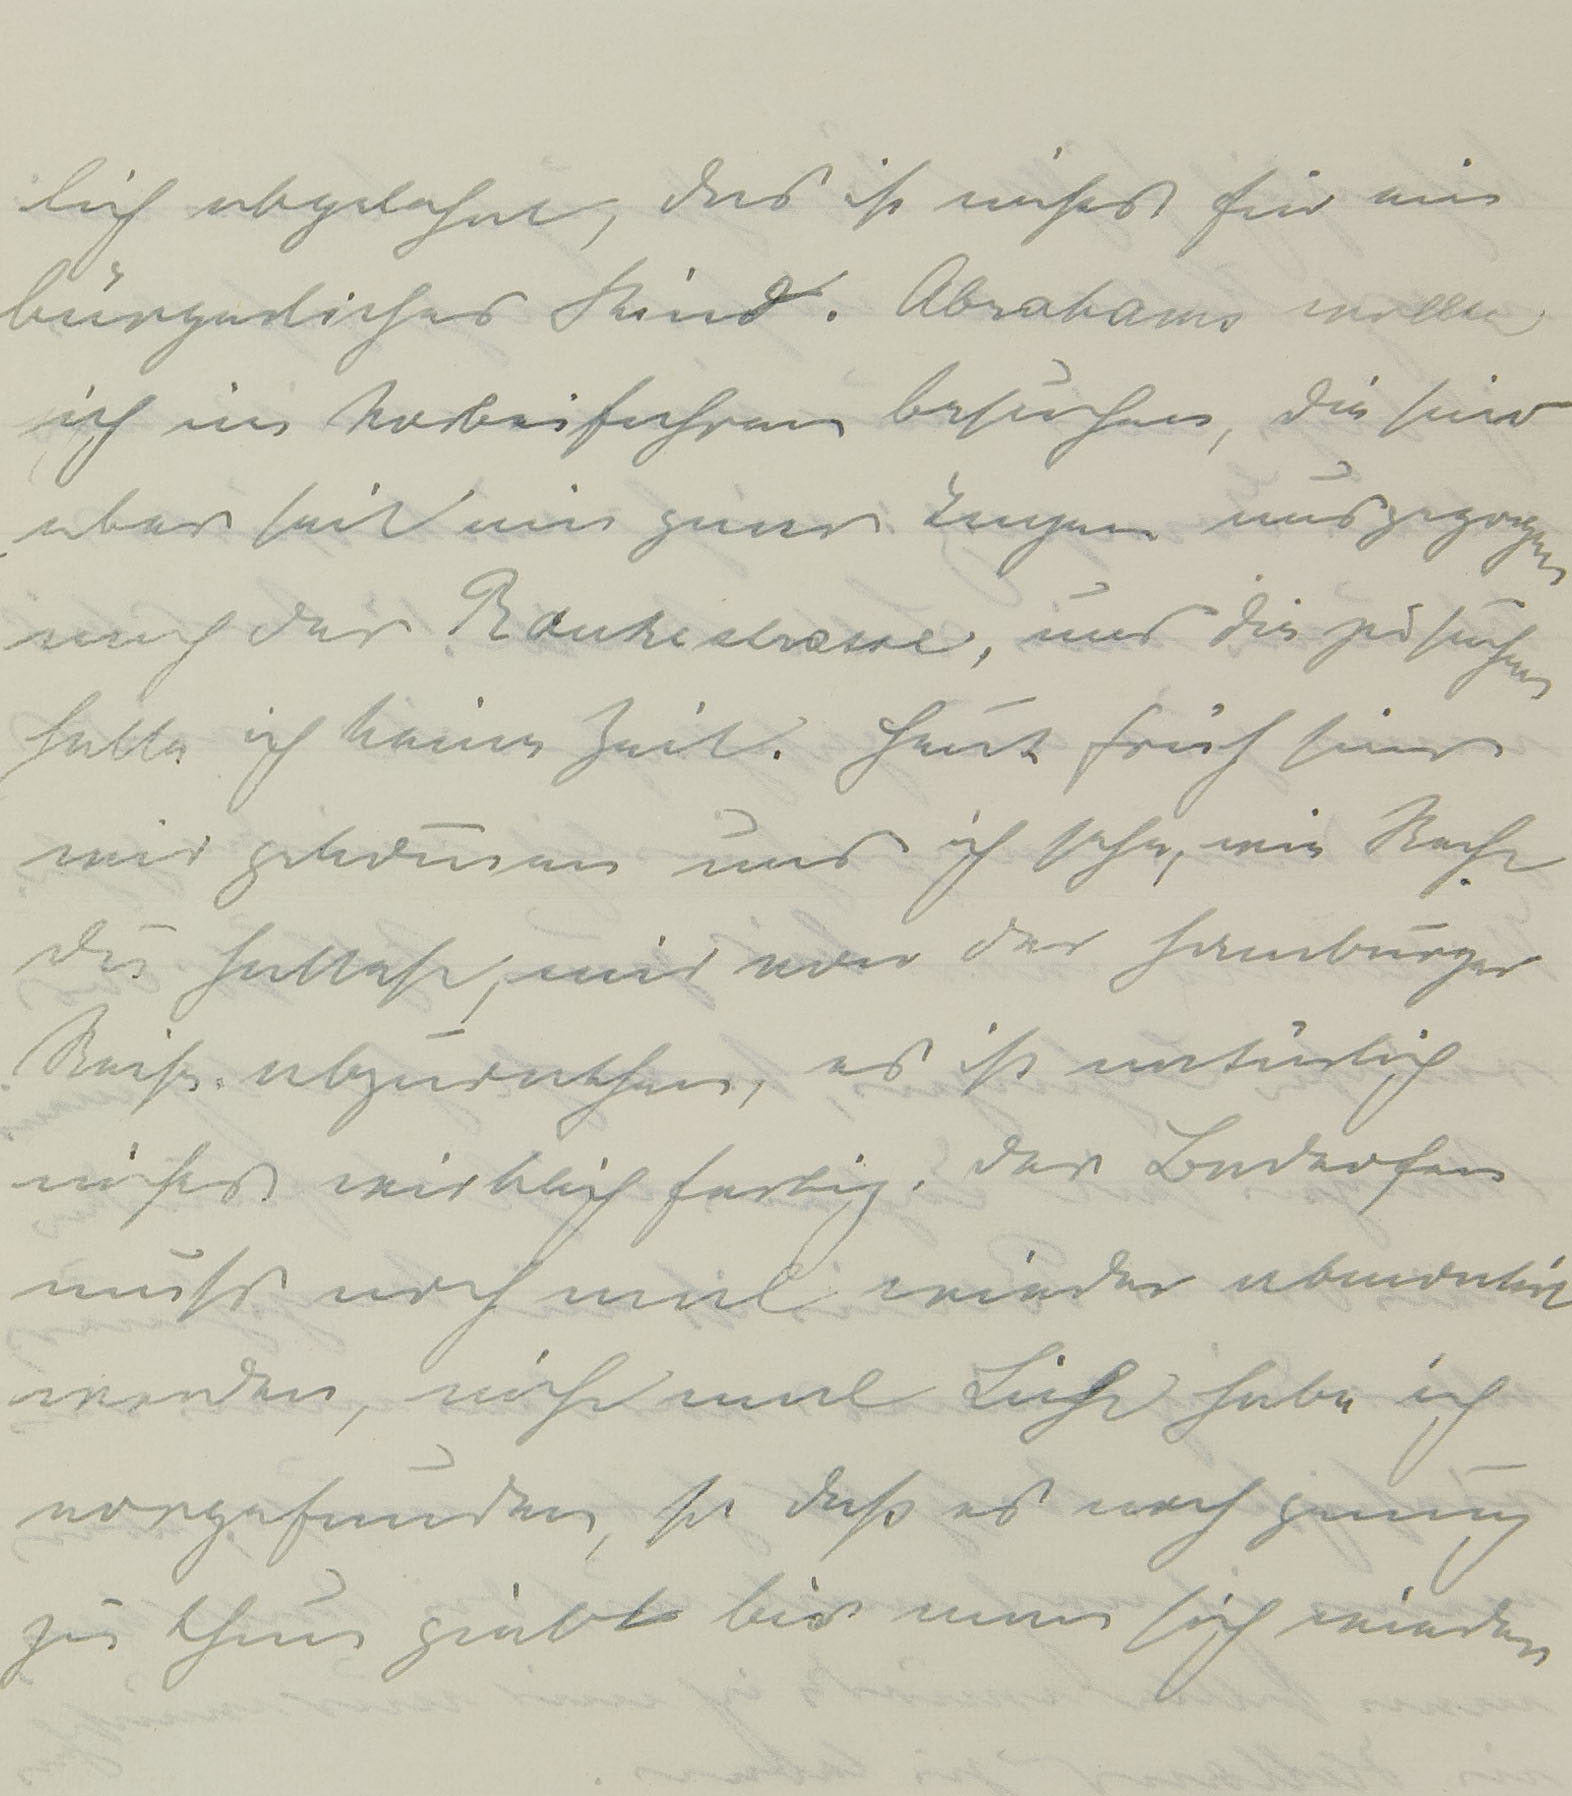 lich abgelehnt, das ist nichts für ein
bürgerliches Kind. Abrahams wollte
ich im Vorbeifahren besuchen, die sind
aber seit ein paar Tagen ausgezogen
nach der Rankestrasse, und die zu suchen
hatte ich keine Zeit. Heut früh sind
wir gekommen und ich sehe, wie Recht
du hattest, mir von der Hamburger
Reise abzurathen, es ist natürlich
nichts wirklich fertig. Der Badeofen
muss noch mal wieder abmontirt
werden, nicht mal Licht habe ich
vorgefunden, so daß es noch genug
zu thun giebt bis man sich wieder